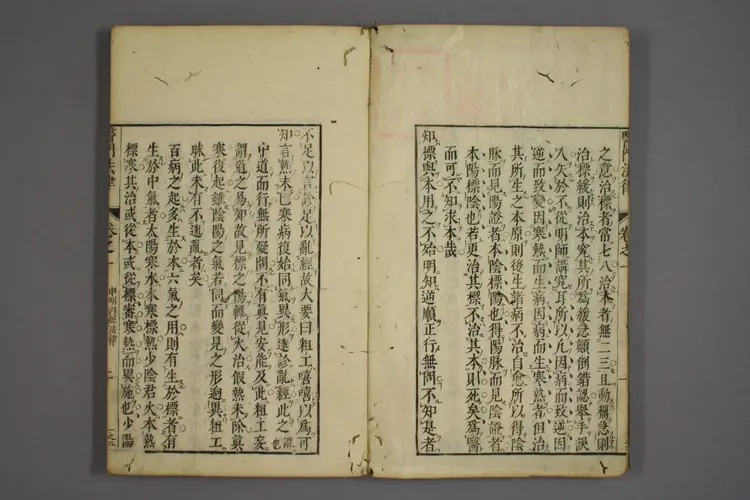 之意治標者當七八治本者無二三且動稱急則
治標緩則治本究其所為緩急顛倒錯認舉手誤
人失於不從明師講究耳所以凡因病而致逆因
逆而致變因寒熱而生病因病而生寒熱者但治
其所生之本原則後生諸病不治自愈所以得陰
脉而見陽證者本陰標陽也得陽脉而見陰證者
本陽標陰也若更治其標不治其本則死矣為醫
而可不知求本哉
知標與本用之不殆明知逆順正行無問不知是者
醫門法律
卷之一
不足以言診足以亂經故大要曰粗工嘻嘻以為可
知言熱未已寒病復始同氣異形迷診亂經此之謂也
中道而行無所疑問不有真見安能及此粗工妄
謂道之易知故見標之陽輒從火治假熱未除真
寒復起雖陰陽之氣若同而變見之形迥異粗工
昧此未有不迷亂者矣
百病之起多生於本六氣之用則有生於標者有
生於中氣者太陽寒水本寒標熱少陰君火本熱
標寒其治或從本或從標審寒熱而異施也少陽
醫門法律
卷之一
申明內經法律
二